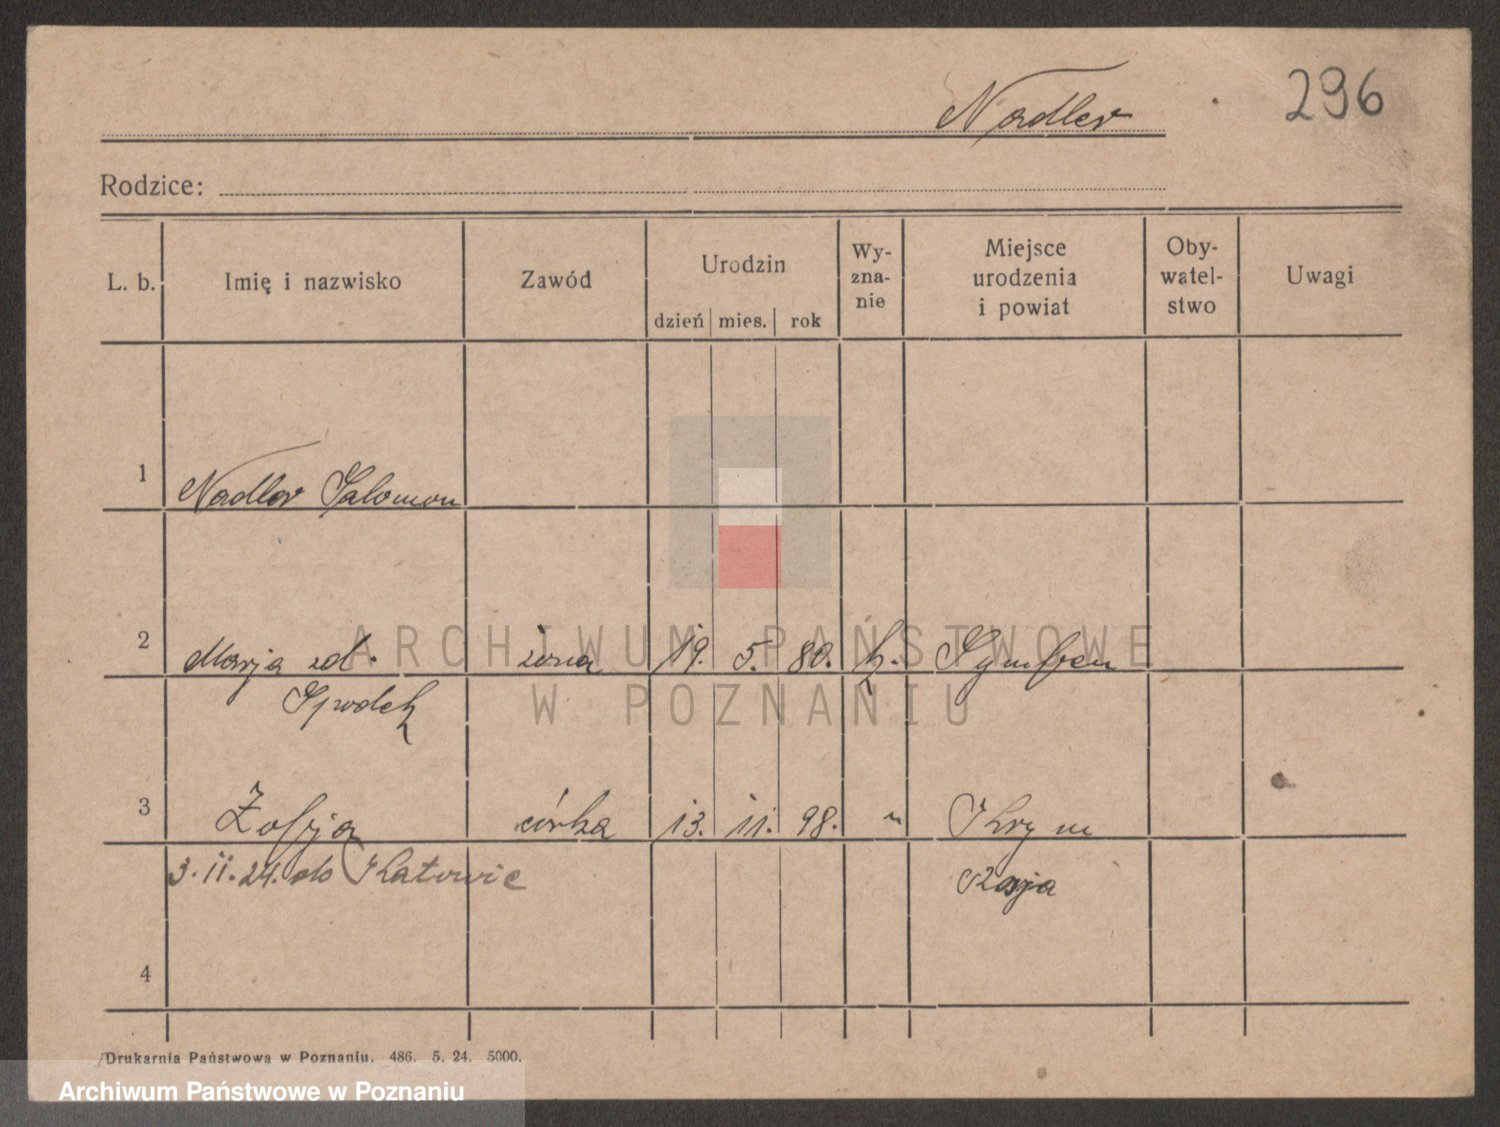 Nadler
296
Rodzice:
L. b. Imię i nazwisko Zawód Urodzin Wy-zna-nie Miejsce urodzenia i powiat Oby-watel-stwo Uwagi
dzień mies. rok
1 Nadler Salomon
2 Marja zd. żona 19. 5. 80. k. Symfer
Spodek
3 Zofja córka 13. 11. 98. " Krym
3. 11. 24. do Katowic Rosja
4
Drukarnia Państwowa w Poznaniu. 486. 5. 24. 5000.
ARCHIWUM PAŃSTWOWE
W POZNANIU
Archiwum Państwowe w Poznaniu